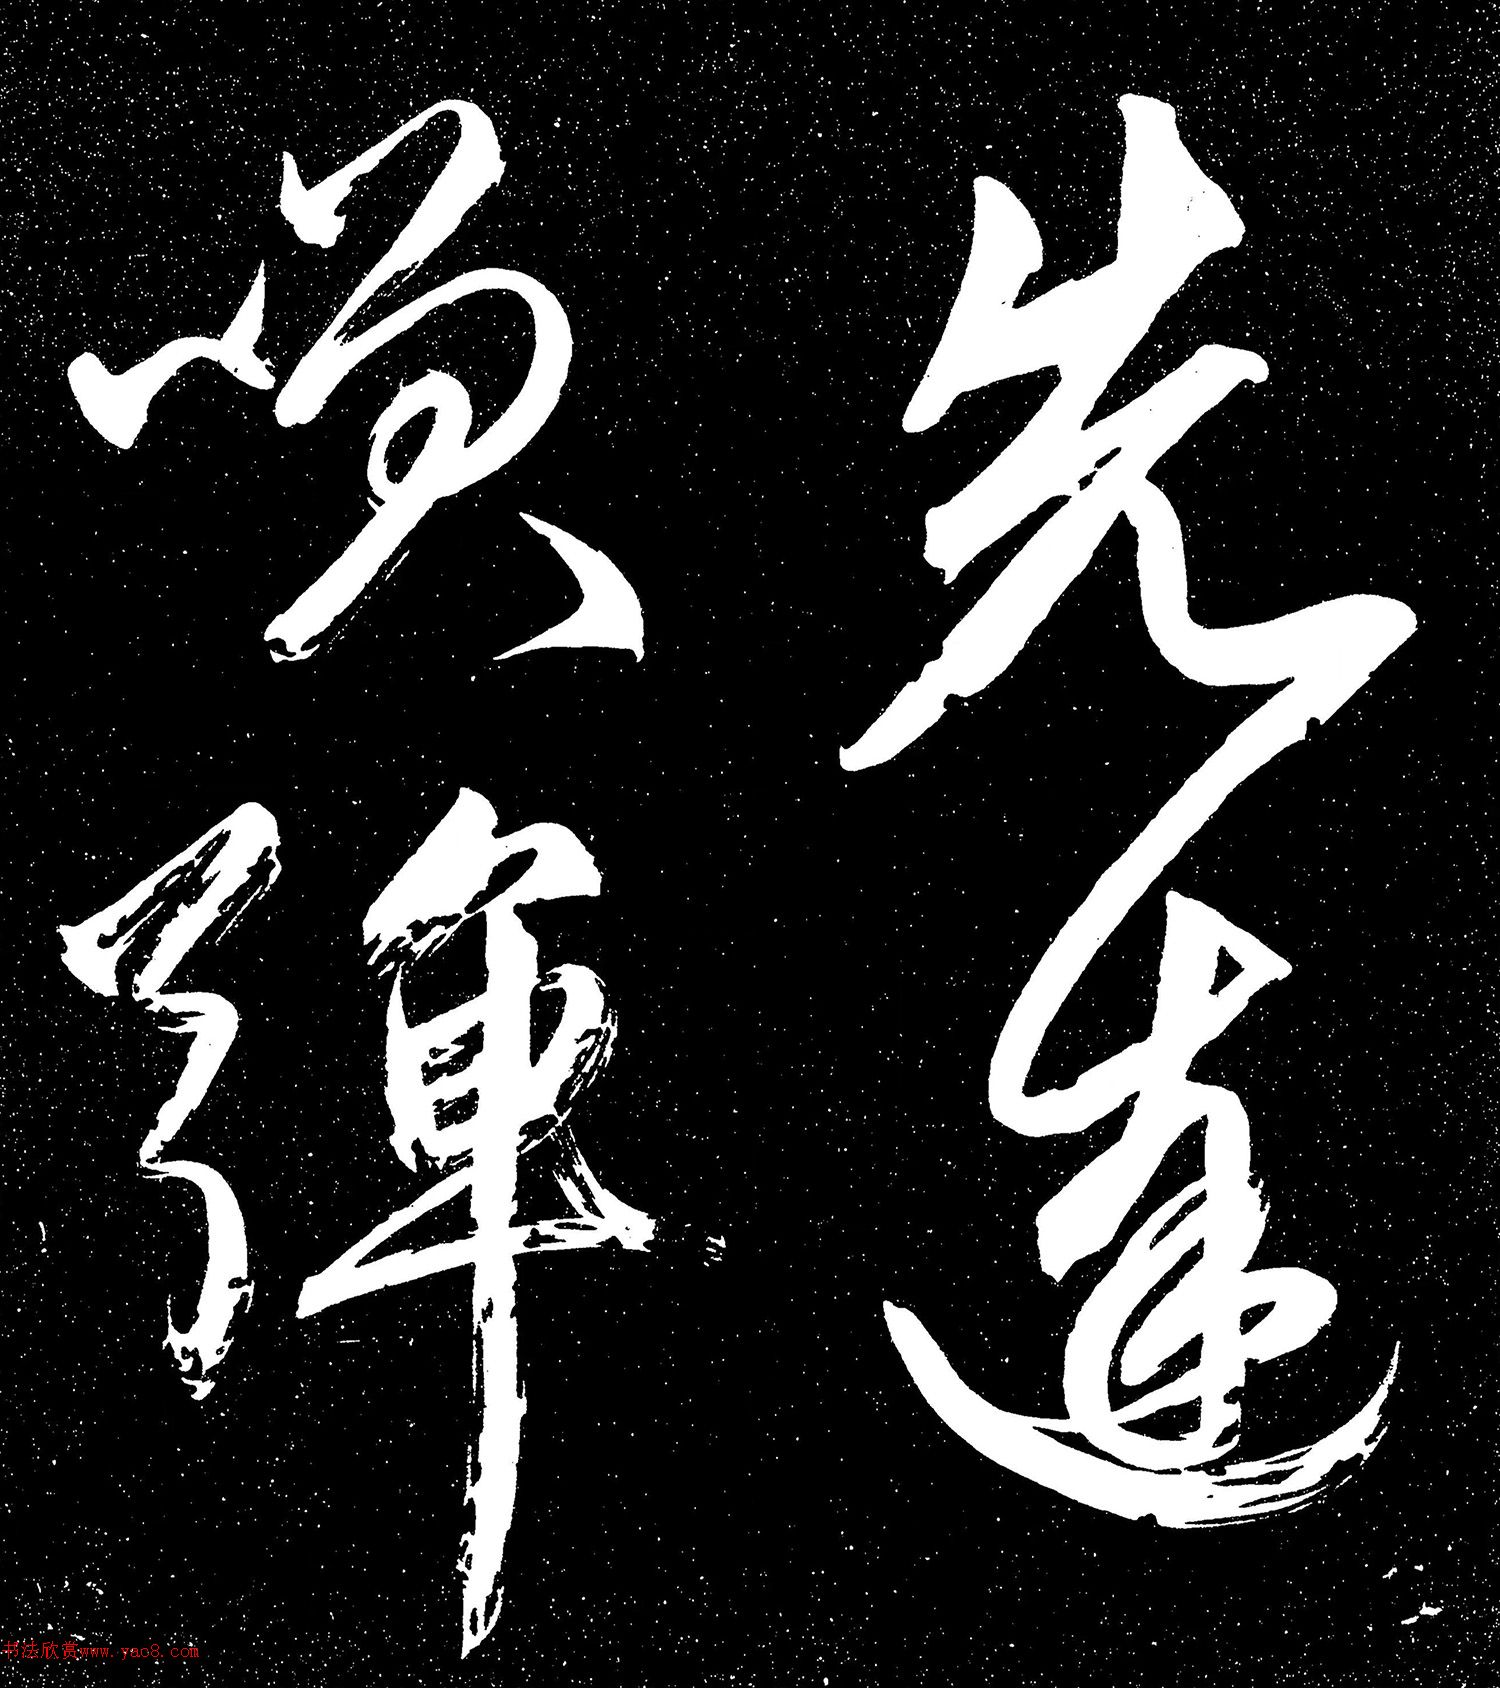 先達
咲彈
书法欣赏www.yac8.com